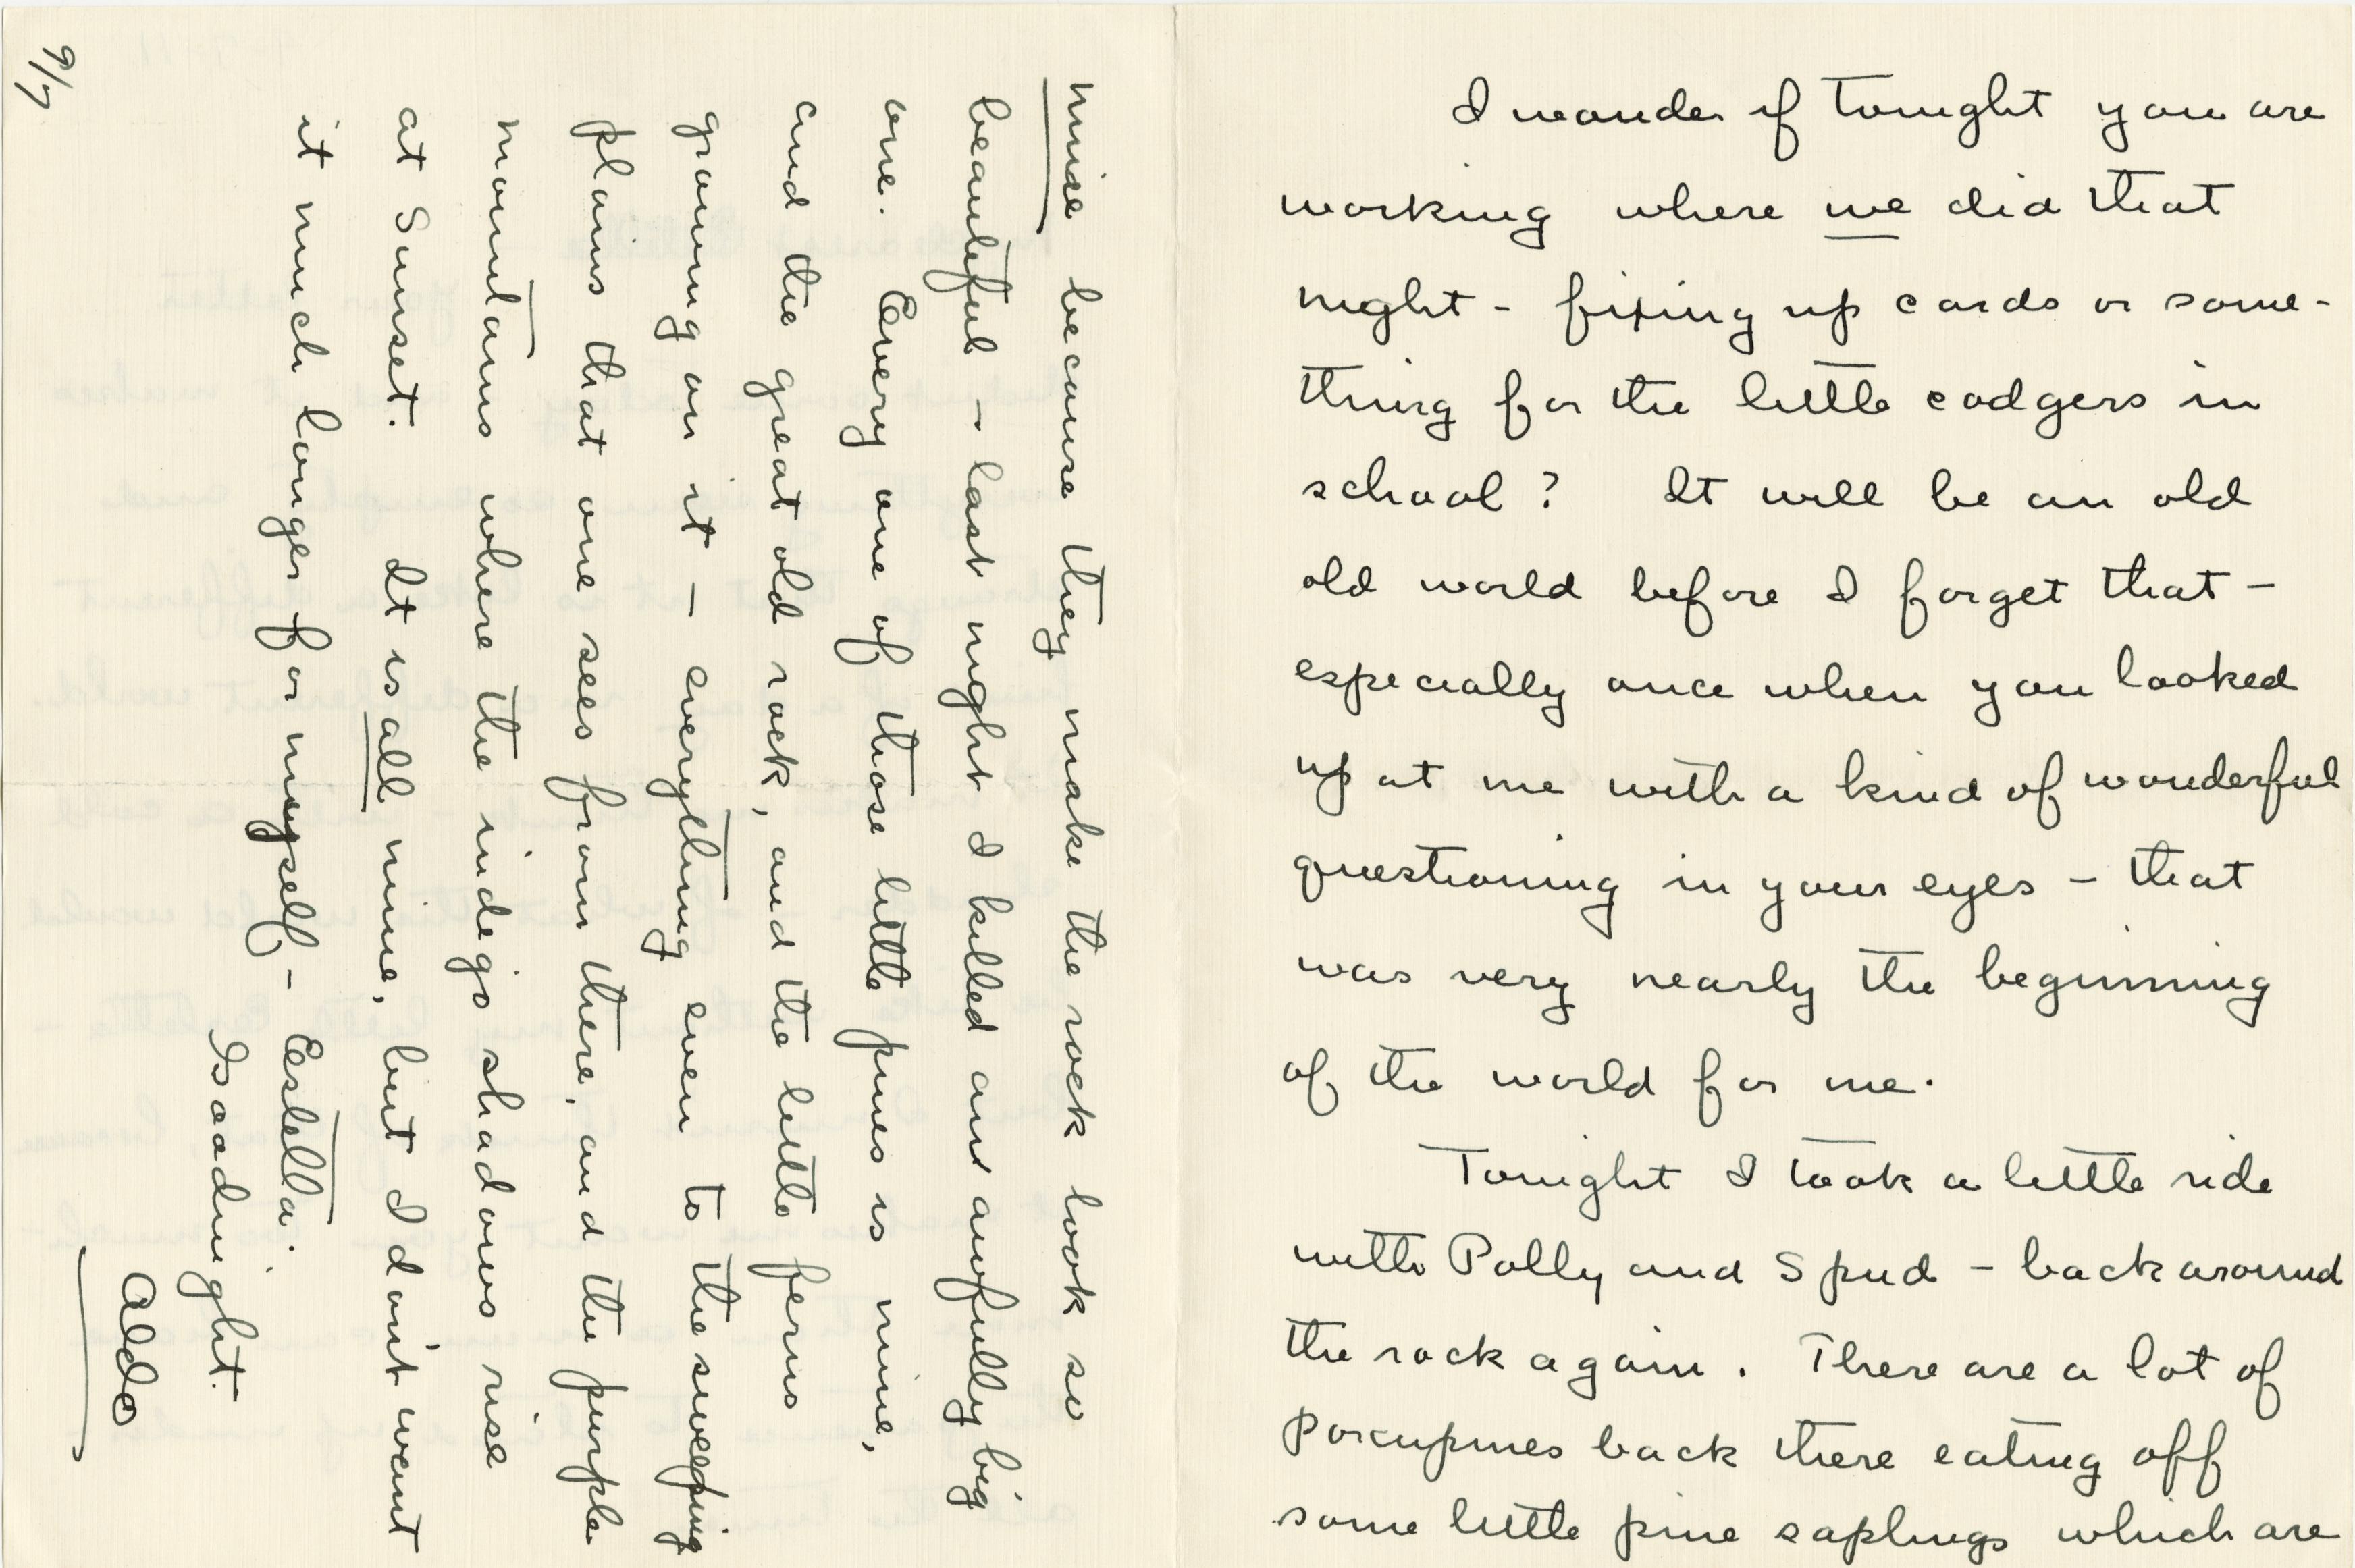 I wonder if tonight you are
working where we did that
night - fixing up cards or some-
thing for the little codgers in
school? It will be an old
old world before I forget that -
especially once when you looked
up at me with a kind of wonderful
questioning in your eyes - that
was very nearly the beginning
of the world for me.
Tonight I took a little ride
with Polly and Spud - back around
the rock again. There are a lot of
porcupines back there eating off
some little pine saplings which are
mine because they make the rock look so
beautiful - last night I killed an awfully big
one. Every one of those little pines is mine,
and the great old rock, and the little ferns
growing on it - everything even to the sweeping
plains that one sees from there, and the purple
mountains where the indigo shadows rise
at sunset. It is all mine, but I don't want
it much longer for myself - Estella.
Goodnight.
Aldo
9/7